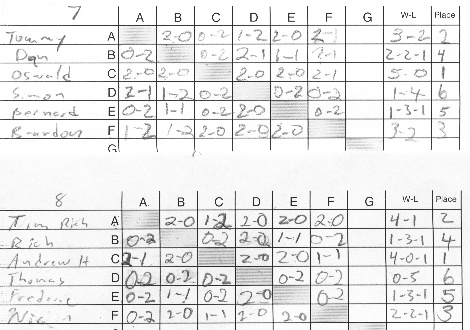 7 A B C D E F G W-L Place
Tommy A 2-0 0-2 1-2 2-0 2-1 3-2 2
Dan B 0-2 0-2 2-1 1-1 2-2-1 4
Oswald C 2-0 2-0 2-0 2-0 2-1 5-0 1
Simon D 2-1 1-2 0-2 0-2 0-2 1-4 6
Bernard E 0-2 1-1 0-2 2-0 0-2 1-3-1 5
Brandon F 1-2 1-2 2-0 2-0 2-0 3-2 3
G
8 A B C D E F G W-L Place
Tim Rich A 2-0 1-2 2-0 2-0 2-0 4-1 2
Rich B 0-2 0-2 2-0 1-1 0-2 1-3-1 4
Andrew H C 2-1 2-0 2-0 2-0 1-1 4-0-1 1
Thomas D 0-2 0-2 0-2 0-2 0-2 0-5 6
E 0-2 1-1 0-2 2-0 0-2 1-3-1 5
F 0-2 2-0 1-1 2-0 2-0 2-2-1 3